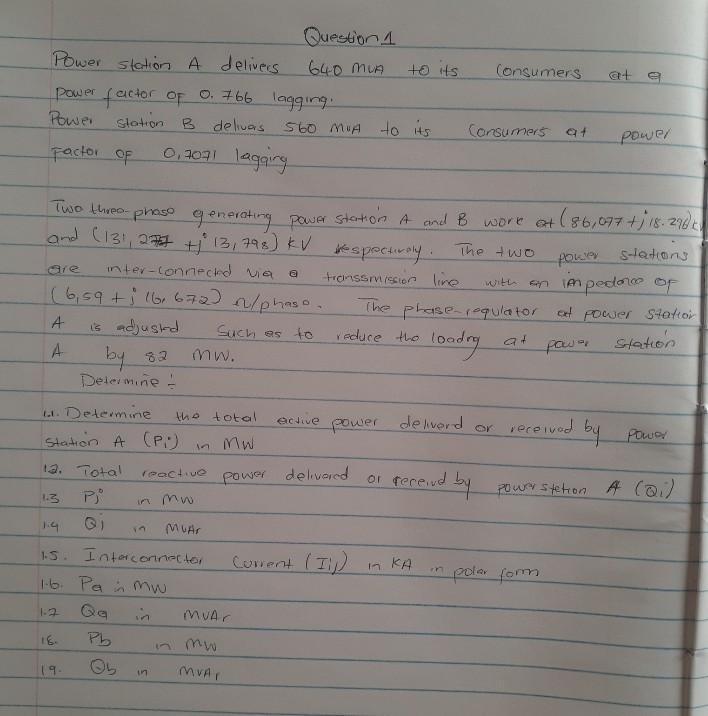 Question 1
Power station A delivers 640 MVA to its consumers at a
power factor of 0.766 lagging.
Power station B delivers 560 MVA to its consumers at power
factor of 0,7071 lagging
Two three-phase generating power station A and B work at (86,077 + j 18.296) kV
and (131, + j 13,798) kV respectively. The two power stations
are inter-connected via a transsmission line with an impedance of
(6,59 + j 16,672) Ω/phase. The phase-regulator at power station
A is adjusted such as to reduce the loading at power station
A by 82 MW.
Determine :-
1.1. Determine the total active power deliverd or received by power
station A (Pi) in MW
1.2. Total reactive power delivered or receivd by power station A (Qi)
1.3 Pj in MW
1.4 Qj in MVAr
1.5. Interconnector Current (Iij) in KA in polar form
1.6. Pa in MW
1.7 Qa in MVAr
18. Pb in MW
19. Qb in MVAr